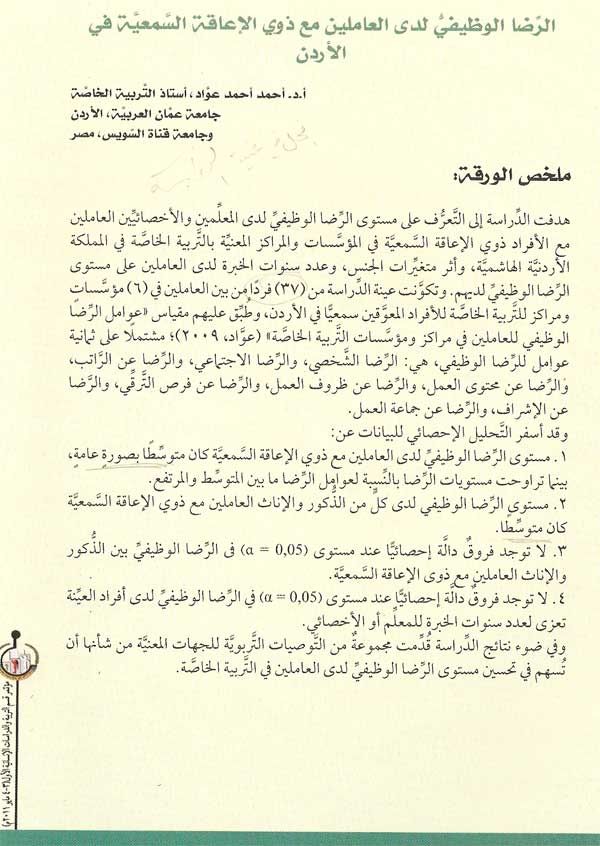 الرّضا الوظيفيُّ لدى العاملين مع ذوي الإعاقة السَّمعيَّة في
الأردن
أ.د. أحمد أحمد عوّاد، أستاذ التّربية الخاصّة
جامعة عمّان العربيّة، الأردن
وجامعة قناة السّويس، مصر
ملخص الورقة:
هدفت الدِّراسة إلى التَّعرُّف على مستوى الرِّضا الوظيفيِّ لدى المعلِّمين والأخصائيِّين العاملين
مع الأفراد ذوي الإعاقة السَّمعية في المؤسَّسات والمراكز المعنيَّة بالتَّربية الخاصَّة في المملكة
الأردنيَّة الهاشميَّة، وأثر متغيِّرات الجنس، وعدد سنوات الخبرة لدى العاملين على مستوى
الرِّضا الوظيفي لديهم. وتكوَّنت عينة الدِّراسة من (٣٧) فردًا من بين العاملين في (٦) مؤسَّساتٍ
ومراكز للتَّربية الخاصَّة للأفراد المعوَّقين سمعيًّا في الأردن، وطُبِّق عليهم مقياس «عوامل الرِّضا
الوظيفي للعاملين في مراكز ومؤسَّسات التَّربية الخاصَّة» (عوَّاد، ٢٠٠٩)؛ مشتملًا على ثمانية
عوامل للرِّضا الوظيفي، هي: الرِّضا الشَّخصي، والرِّضا الاجتماعي، والرِّضا عن الرَّاتب،
والرِّضا عن محتوى العمل، والرِّضا عن ظروف العمل، والرِّضا عن فرص التَّرقِّي، والرِّضا
عن الإشراف، والرِّضا عن جماعة العمل.
وقد أسفر التَّحليل الإحصائي للبيانات عن:
١. مستوى الرِّضا الوظيفيِّ لدى العاملين مع ذوي الإعاقة السَّمعيَّة كان متوسِّطًا بصورةٍ عامةٍ،
بينما تراوحت مستويات الرِّضا بالنِّسبة لعوامل الرِّضا ما بين المتوسِّط والمرتفع.
٢. مستوى الرِّضا الوظيفي لدى كل من الذُّكور والإناث العاملين مع ذوي الإعاقة السَّمعيَّة
كان متوسِّطًا.
٣. لا توجد فروقٌ دالَّة إحصائيًّا عند مستوى (α = 0,05) في الرِّضا الوظيفيِّ بين الذُّكور
والإناث العاملين مع ذوي الإعاقة السَّمعيَّة.
٤. لا توجد فروقٌ دالَّة إحصائيًّا عند مستوى (α = 0,05) في الرِّضا الوظيفي لدى أفراد العيِّنة
تعزى لعدد سنوات الخبرة للمعلِّم أو الأخصائي.
وفي ضوء نتائج الدِّراسة قُدِّمت مجموعةٌ من التَّوصيات التَّربويَّة للجهات المعنيَّة من شأنها أن
تُسهم في تحسين مستوى الرِّضا الوظيفيِّ لدى العاملين في التَّربية الخاصَّة.
مؤتمر قسم التربية والدراسات الإنسانية الأول